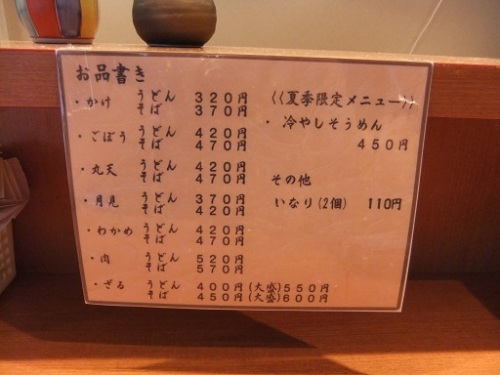 お品書き
・かけ うどん 320円
そば 370円
・ごぼう うどん 420円
そば 470円
・丸天 うどん 420円
そば 470円
・月見 うどん 370円
そば 420円
・わかめ うどん 420円
そば 470円
・肉 うどん 520円
そば 570円
・ざる うどん 400円(大盛)550円
そば 450円(大盛)600円
((夏季限定メニュー))
・冷やしそうめん
450円
その他
いなり(2個) 110円